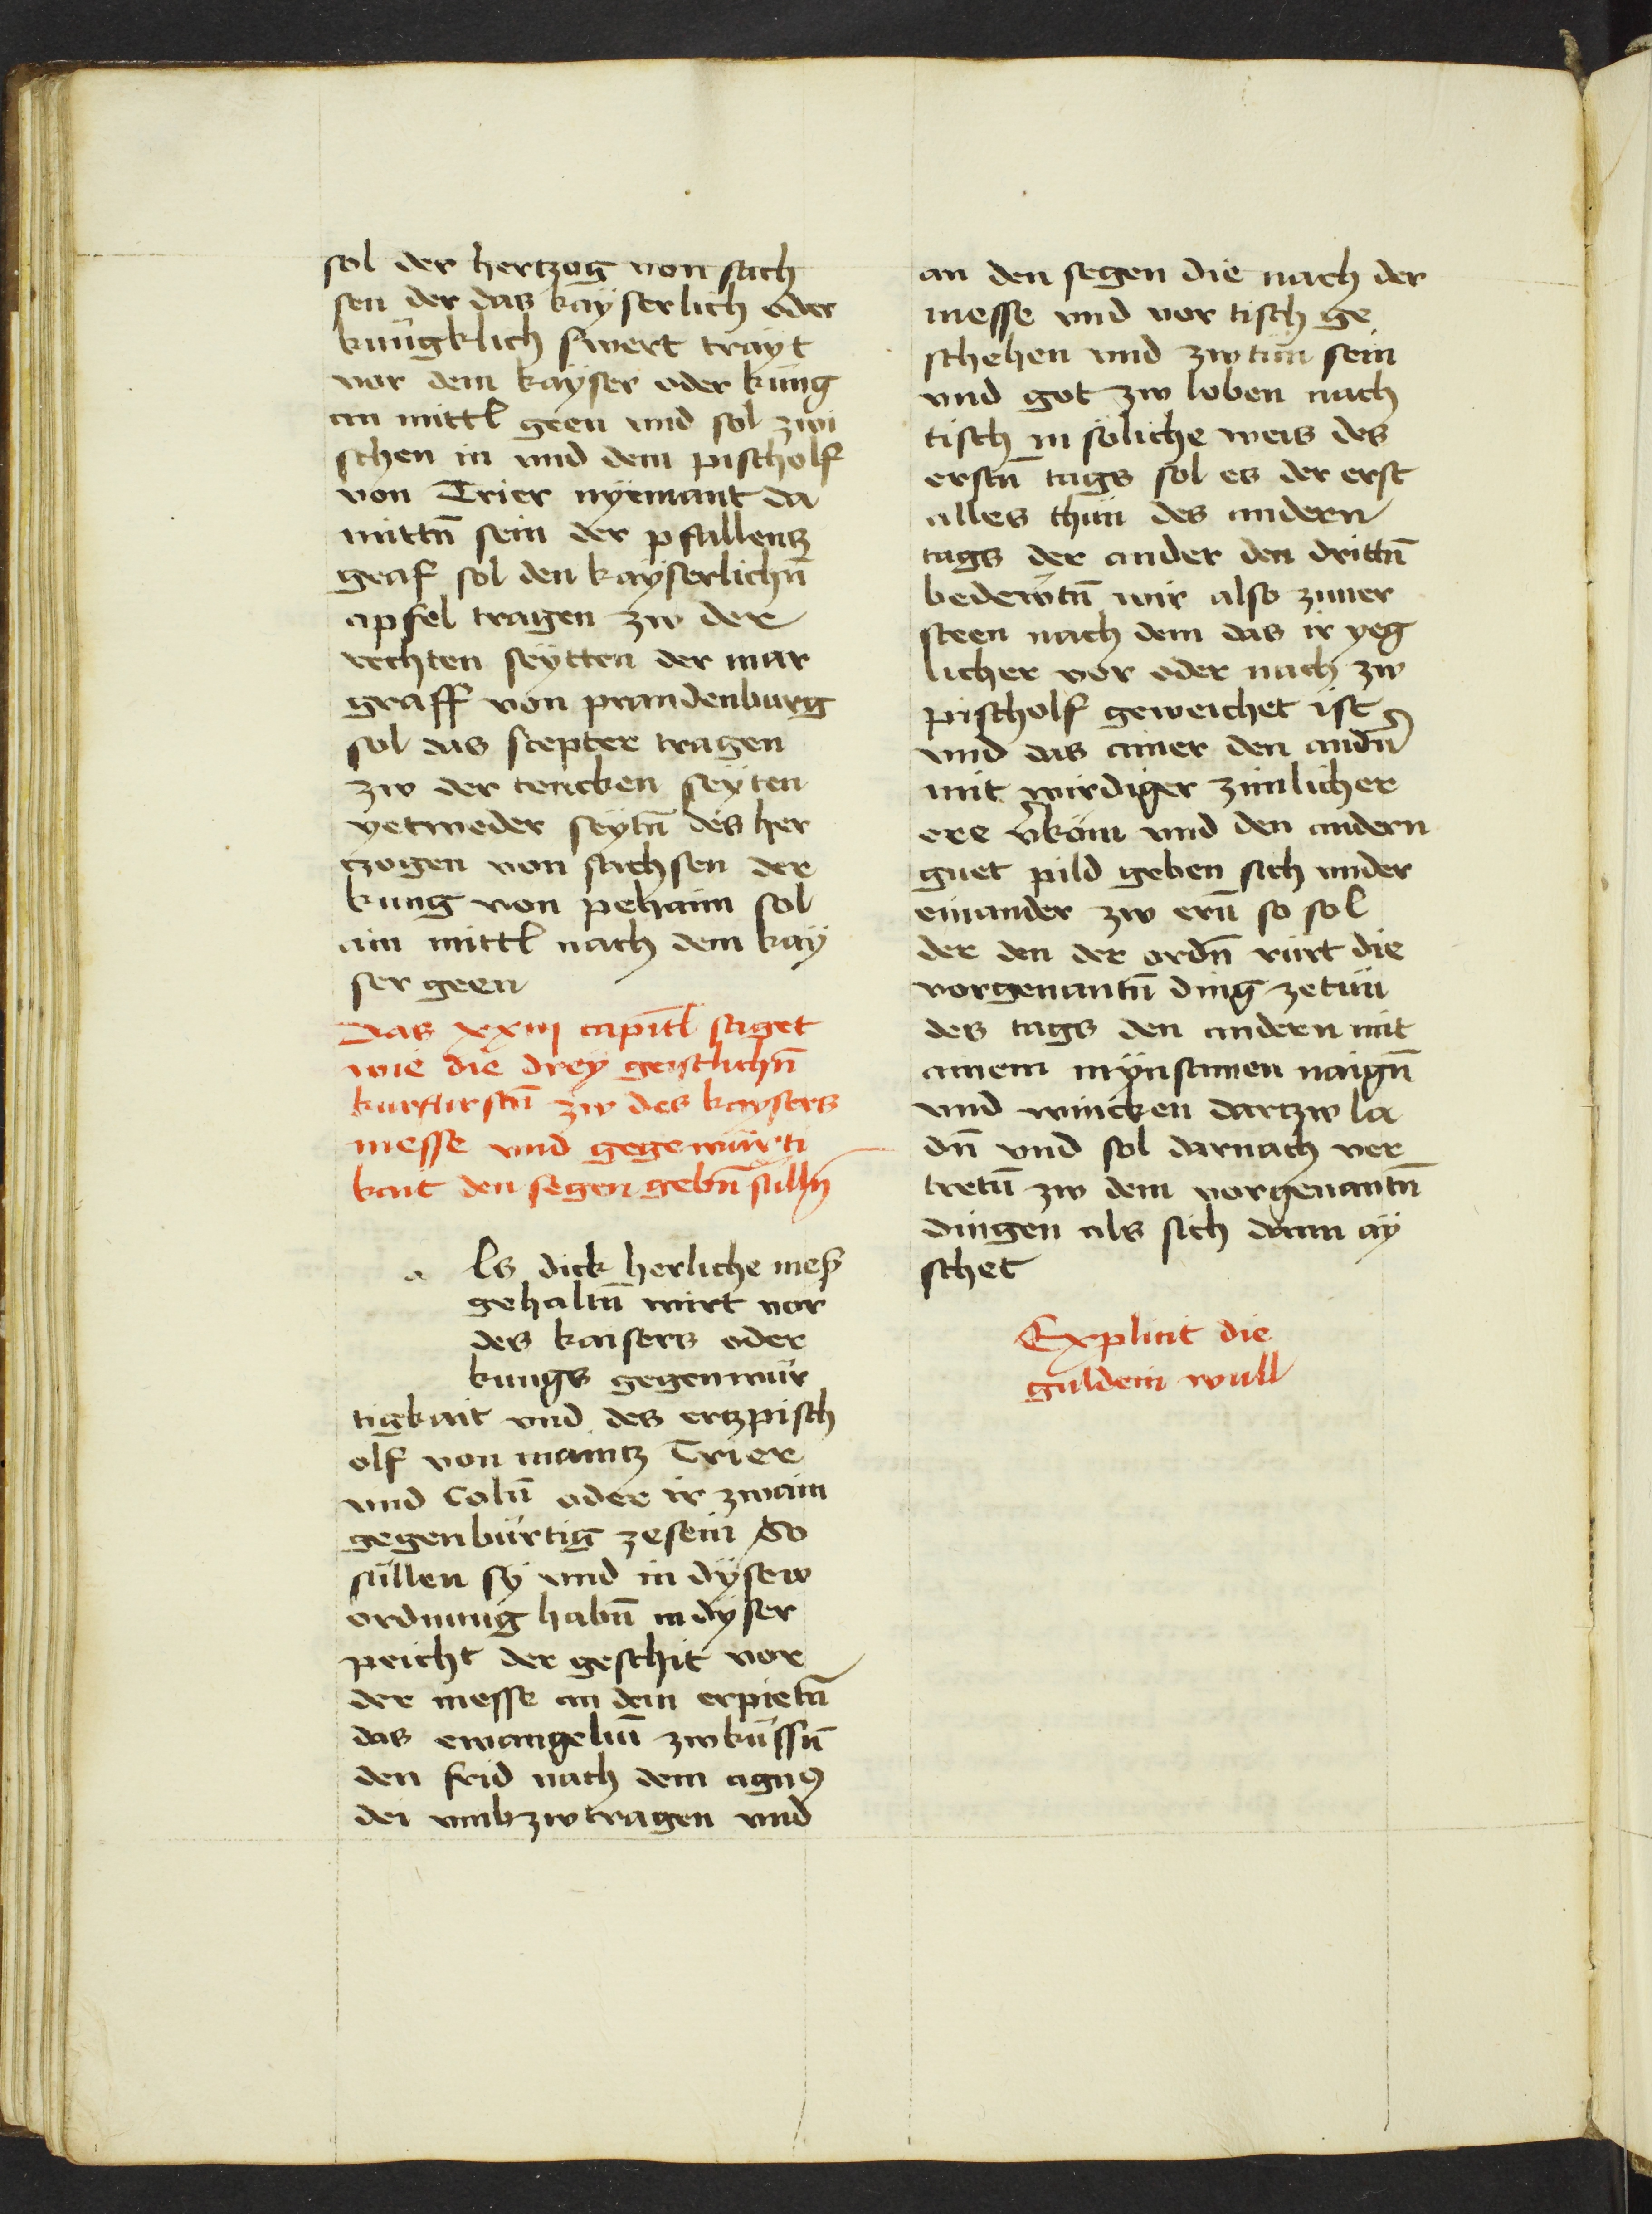 sol der hertzog von sach
sen der das kayserlich oder
küngklich swert trayt
vor dem kayser oder küng
an mittl geen vnd sol zwi
schen in vnd dem pischolf
von Trier nyemant da
mittn̄ sein der pfallentz
graf sol den kayserlichn̄
apfel tragen zw der
rechten seytten der mar
graff von prandenburg
sol das scepter tragen
zw der tencken seyten
yetweder seytn̄ des her
tzogen von sachsen der
kung von pehaim sol
ain mittl nach dem kay
ser geen
Das xxiij capitl saget
wie die drey geistlichn̄
kurfurstn̄ zw des kaysers
messe vnd gegewürti
kait den segen gebn̄ sulln̄
a ls dick herliche meß
gehaltn̄ wirt vor
des kaisers oder
kungs gegenwür
tigkait vnd des ertzpisch
olf von maintz Trier
vnd Coln̄ oder ir zwain
gegenbürtig zesein So
süllen sy vnd in dysew
ordnung habn̄ in dyser
pricht der geschit vor
der messe an dem erpietn̄
das ewangeliū zwküssn̄
den frid nach dem agnꝰ
dei vmbzwtragen vnd
an den segen die nach der
messe vnd vor tisch ge
schehen vnd zwtün sein
vnd got zw loben nach
tisch in söliche weis des
erstn̄ tags sol es der erst
alles thün des andern
tags der ander den drittn̄
bedewtn̄ wir also zuuer
steen nach dem das ir yeg
licher vor oder nach zw
pischolf geweichet ist
vnd das ainer den andn̄
mit wirdiger zimlicher
ere v̉köm vnd den andern
guet pild geben sich vnder
einander zw ern̄ so sol
der den der ordn̄ rürt die
vorgenantn̄ ding zetün
des tags den andern mit
ainem mynsamen naign̄
vnd wincken dartzw la
dn̄ vnd sol darnach ver
tretn̄ zw dem vorgenantn̄
dingen als sich dann ay
schet
Explicit die
guldein wull